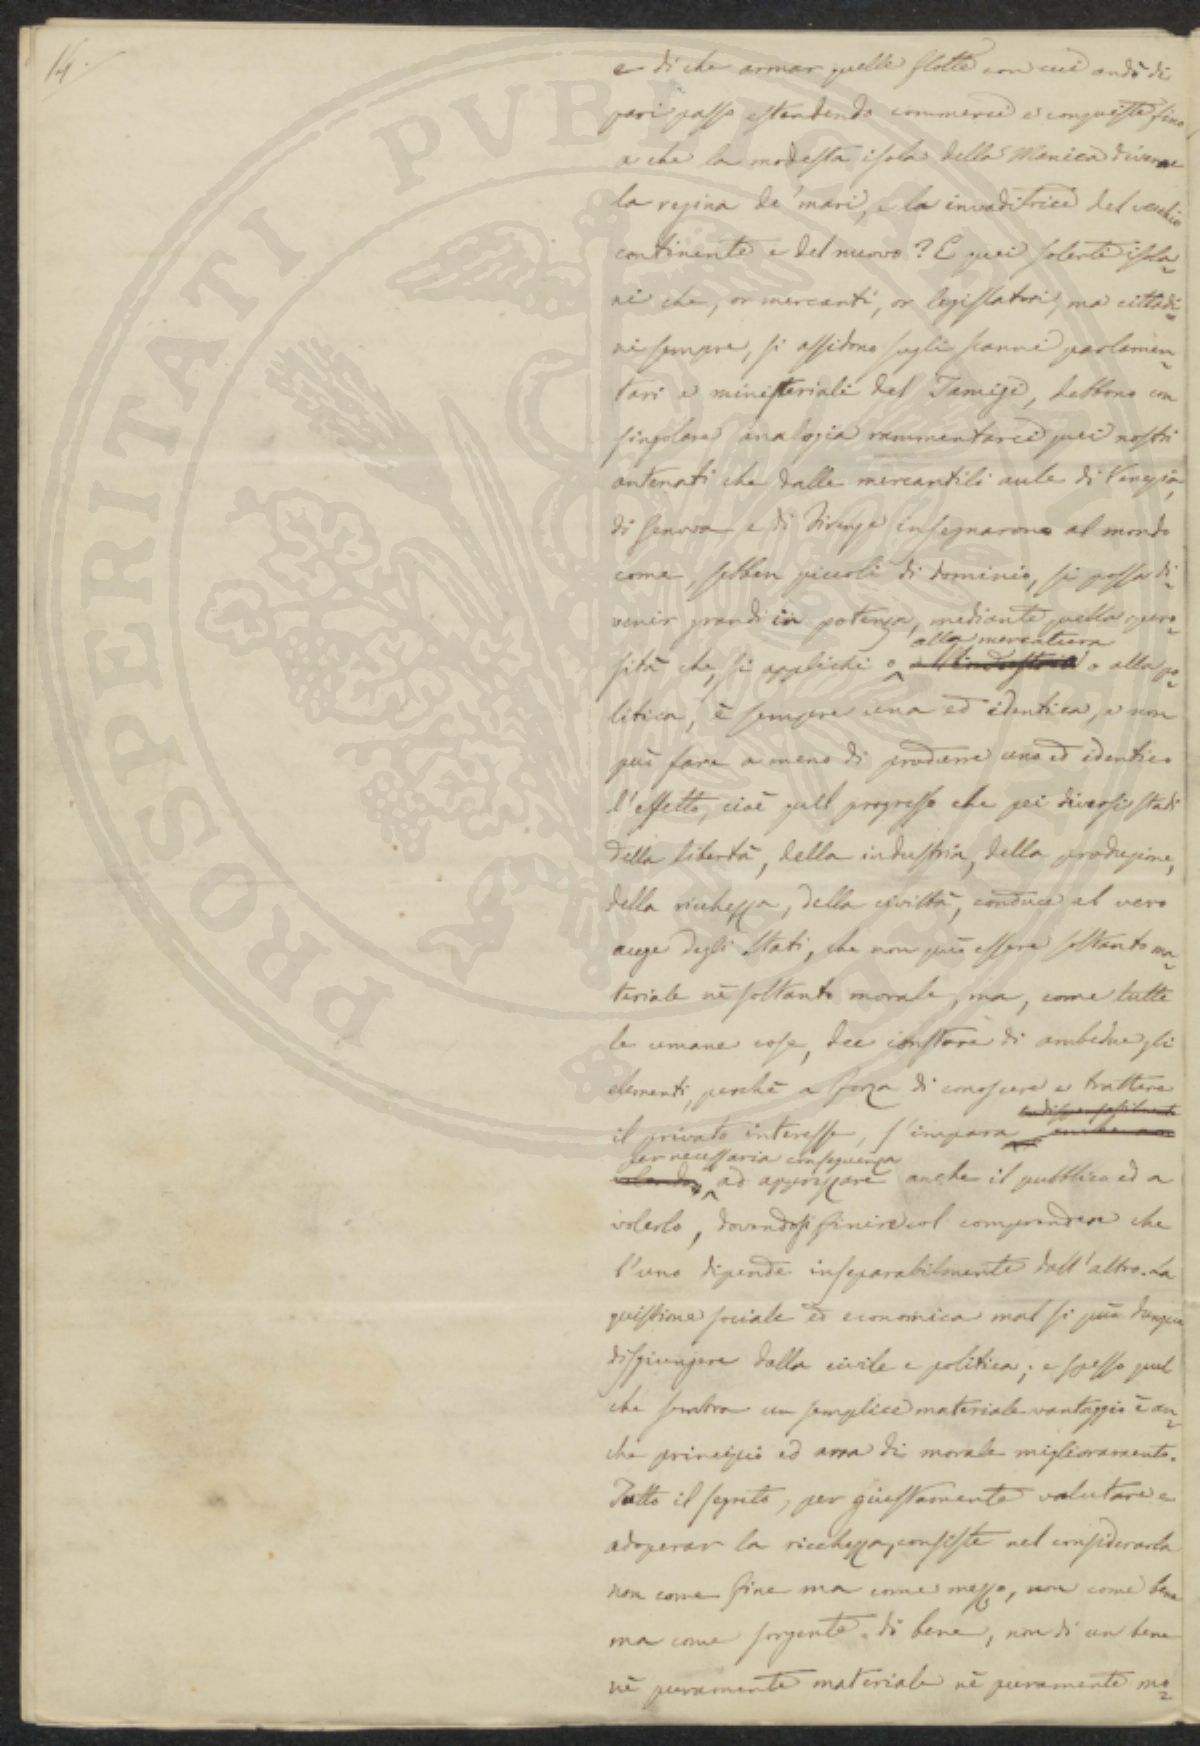 14.
e di che armar quelle flotte con cui andò di
pari passo estendendo commerci e conquiste fino
a che la modesta isola della Manica divenne
la regina de' mari, e la invaditrice del vecchio
continente e del nuovo? E quei solerti isola-
ni che, or mercanti, or legislatori, ma cittadi-
ni sempre, si assidono sugli scanni parlamen-
tari e ministeriali del Tamigi, debbono con
singolare analogia rammentarci quei nostri
antenati che dalle mercantili aule di Venezia,
di Genova e di Firenze insegnarono al mondo
come, sebben piccoli di dominio, si possa di-
venir grandi in potenza, mediante quella opero-
alla mercatura
sità che, si applichi o all'industria o alla po-
litica, è sempre una ed identica, e non
può fare a meno di produrre uno ed identico
l'effetto, cioè quel progresso che pei diversi stadi
della libertà, della industria, della produzione,
della ricchezza, della civiltà, conduce al vero
auge degli Stati, che non può essere soltanto ma-
teriale nè soltanto morale, ma, come tutte
le umane cose, dee constare di ambedue gli
elementi, perchè a forza di conoscere e trattare
il privato interesse, s'impara
per necessaria conseguenza
ad apprezzare anche il pubblico ed a
volerlo, dovendosi finire col comprendere che
l'uno dipende inseparabilmente dall'altro. La
quistione sociale ed economica mal si può dunque
disgiungere dalla civile e politica; e spesso quel
che sembra un semplice materiale vantaggio è an-
che principio ed arra di morale miglioramento.
Tutto il segreto, per giustamente valutare e
adoperar la ricchezza, consiste nel considerarla
non come fine ma come mezzo, non come bene
ma come sorgente di bene, non di un bene
nè puramente materiale nè puramente mo-
PROSPERITATI PUBLICAE